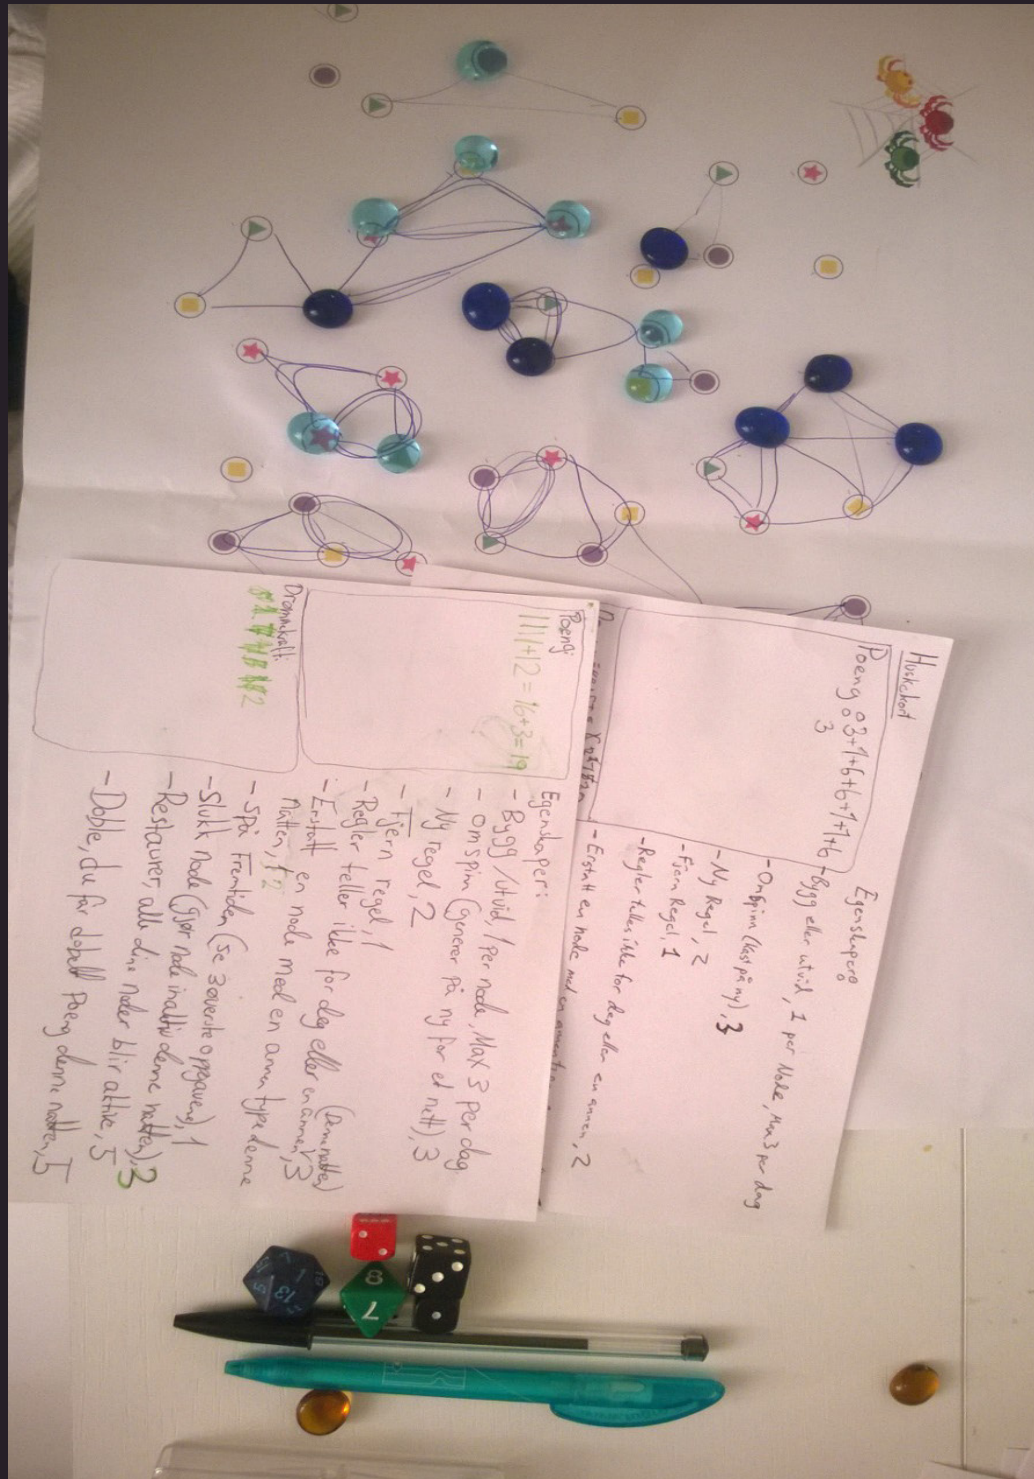 Huskekort
Poeng: 3+1+6+6+1+1+6
3
Egenskaper:
-Bygg eller utvid, 1 per Node, Max 3 per dag
-Omspinn (kast på ny), 3
-Ny Regel, 2
-Fjern Regel, 1
-Regler telles ikke for deg eller en annen, 2
-Erstatt en node med en annen
Poeng:
1111+12=16+3=19
Drømmkraft:
2
Egenskaper:
- Bygg/utvid 1 per node, Max 3 per dag
- omspinn (generer på ny for et nett), 3
- Ny regel, 2
- Fjern regel, 1
- Regler teller ikke for deg eller en annen, 3 (Denne natten)
- Erstatt en node med en annen type denne
natten, 2
- Spå Fremtiden (se 3 øverste oppgavene), 1
- Slukk node (gjør node inaktiv denne natten), 3
- Restaurer, alle dine noder blir aktive, 5
- Doble, du får dobelt Poeng denne natten, 5
13
8
7